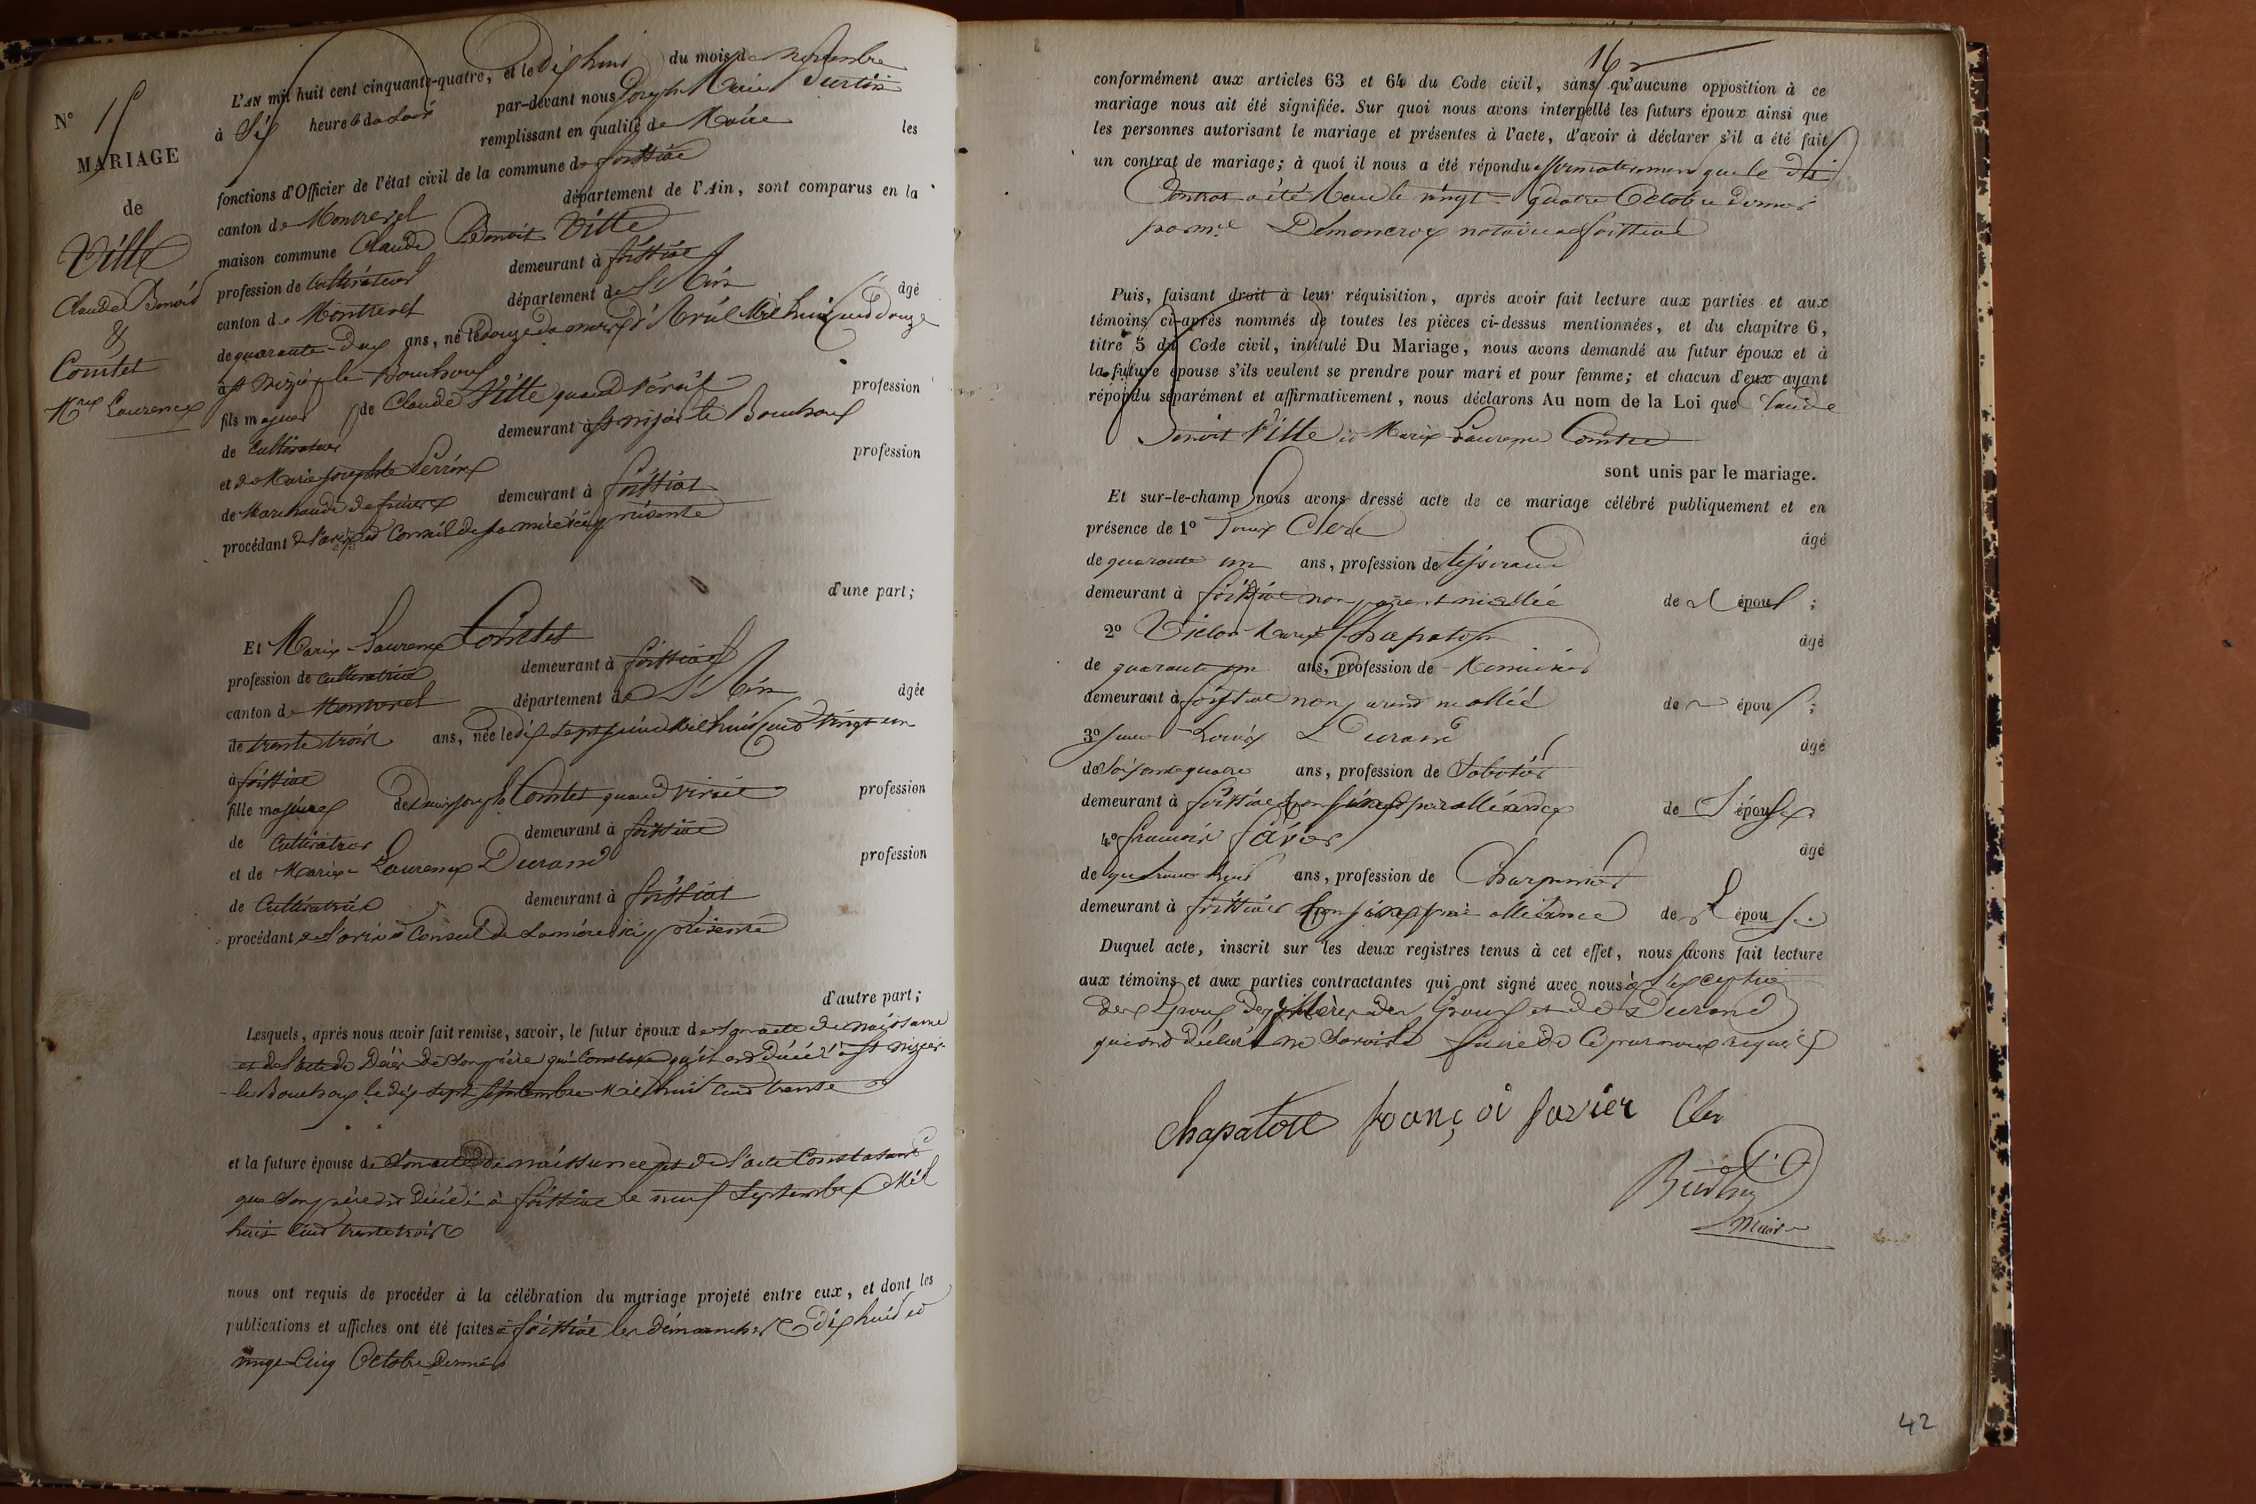 N° 15
MARIAGE
de
Ville
Claude Benoit
&
Comtet
Mrie Laurence
L'AN mil huit cent cinquante-quatre, et le dix huit du mois de novembre
à Six heures du soir par-devant nous Joseph Marie
remplissant en qualité de Maire les
fonctions d'Officier de l'état civil de la commune de foissiat
canton de Montrevel département de l'Ain, sont comparus en la
maison commune Claude Benoit Ville
profession de Cultivateur demeurant à foissiat
canton de Montrevel département de l'Ain âgé
de quarante-deux ans, né le douze du mois d'Avril Mil huit cent douze
à St Nizier le Bouchoux
fils majeur de Claude Ville quand vivait profession
de Cultivateur demeurant à St nizier le Bouchoux
et de Marie Josephte Perrin profession
de Marchande demeurant à foissiat
procédant de l'avis et Conseil de sa mère ici présente
d'une part;
Et Marie Laurence Comtet
profession de Cultivatrice demeurant à foissiat
canton de Montrevel département de l'Ain âgée
de trente trois ans, née le dix sept juin Mil huit cent vingt un
à foissiat
fille majeure de Comtet quand vivait profession
de Cultivateur demeurant à foissiat
et de Marie Laurence Durand profession
de Cultivatrice demeurant à foissiat
procédant de l'avis et Conseil de sa mère ici présente
d'autre part;
Lesquels, après nous avoir fait remise, savoir, le futur époux de son acte de naissance
et de l'acte de Décès de son père qui Constate qu'il est Décédé à St nizier
le Bouchoux le dix sept Septembre Mil huit cent trente
et la future épouse de son acte de naissance et de l'acte Constatant
que son père est Décédé à foissiat le neuf Septembre Mil
huit cent trente trois
nous ont requis de procéder à la célébration du mariage projeté entre eux, et dont les
publications et affiches ont été faites à foissiat les dimanches dix huit et
vingt Cinq Octobre dernier
16
conformément aux articles 63 et 64 du Code civil, sans qu'aucune opposition à ce
mariage nous ait été signifiée. Sur quoi nous avons interpellé les futurs époux ainsi que
les personnes autorisant le mariage et présentes à l'acte, d'avoir à déclarer s'il a été fait
un contrat de mariage; à quoi il nous a été répondu affirmativement que le dit
Contrat a été Reçu le vingt-quatre Octobre dernier
par me Demoncroix notaire a foissiat
Puis, faisant droit à leur réquisition, après avoir fait lecture aux parties et aux
témoins ci-après nommés de toutes les pièces ci-dessus mentionnées, et du chapitre 6,
titre 5 du Code civil, intitulé Du Mariage, nous avons demandé au futur époux et à
la future épouse s'ils veulent se prendre pour mari et pour femme; et chacun d'eux ayant
répondu séparément et affirmativement, nous déclarons Au nom de la Loi que Claude
Benoit Ville et Marie Laurence Comtet
sont unis par le mariage.
Et sur-le-champ nous avons dressé acte de ce mariage célébré publiquement et en
présence de 1° Clerc âgé
de quarante un ans, profession de tisserand
demeurant à foissiat non parent ni allié de l'époux;
2° Victor Marie Chapatot âgé
de quarante un ans, profession de Menuisier
demeurant à foissiat non parent ni allié de époux;
3° Louis Durand âgé
de Soixante quatre ans, profession de Sabotier
demeurant à foissiat par alliance de l'épouse
4° francois favier âgé
de ans, profession de Charpentier
demeurant à foissiat par alliance de l'épouse
Duquel acte, inscrit sur les deux registres tenus à cet effet, nous avons fait lecture
aux témoins et aux parties contractantes qui ont signé avec nous à l'exception
des Epoux des mères des Epoux et de Durand
qui ont déclaré ne Savoir le faire de ce par nous requis
Chapatot françoi favier Cler
Maire
42